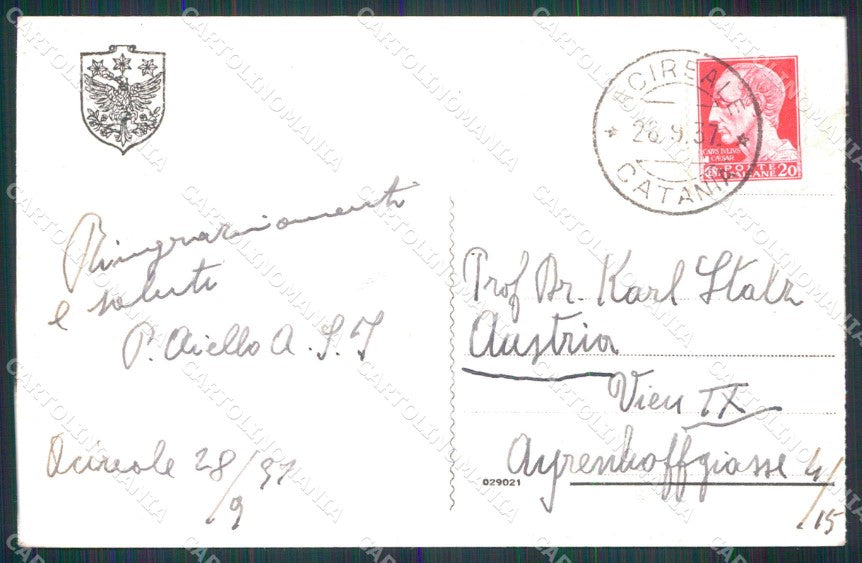 Ringraziamenti
e saluti
P. Aiello A. S. J
Acireale 28/9/37
ACIREALE
28.9.37.
CATANIA
CAIVS IVLIVS
CAESAR
POSTE
ITALIANE 20
Prof Dr. Karl Stalz
Austria
Vien IX
Ayrenhoffgiasse 4/15
029021
CARTOLINOMANIA